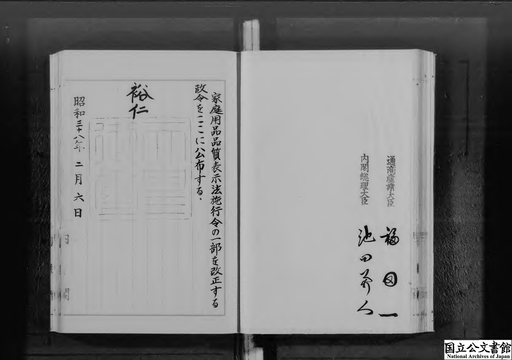 通商産業大臣 福田一
内閣総理大臣 池田勇人
家庭用品品質表示法施行令の一部を改正する
政令をここに公布する。
裕仁
昭和三十八年 二月 六日
国立公文書館
National Archives of Japan